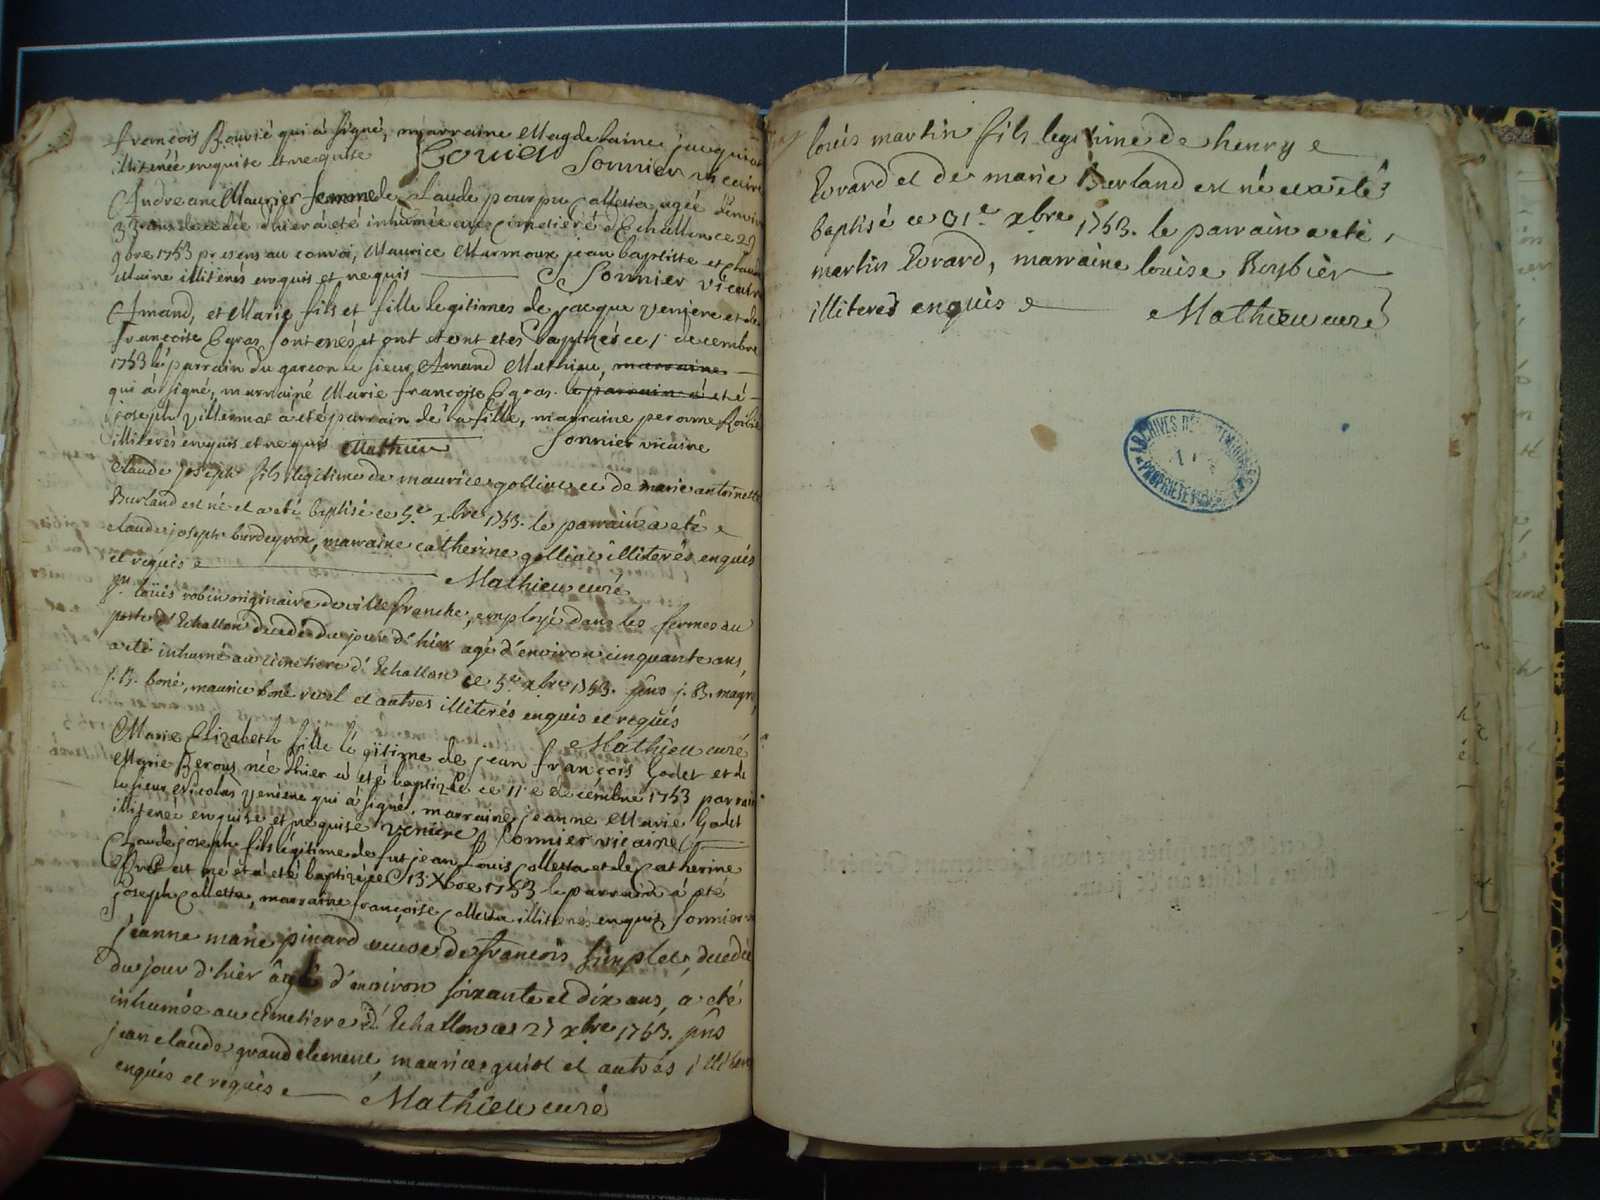 françois Bouvié qui à signé, marraine Magdelaine jacquin
illiterée enquise et requise Bouvié Sonnier vicaire
Andreane Maurier femme de Claude pour pu Colletta agée d'environ
ans decedée d'hier à été inhumée au Cimetiere d'Echallon ce 29
9bre 1753 presens au convoi, Maurice Marmoux jean baptiste et Claude
Maine illiterés enquis et requis Sonnier vicaire
Amand, et Marie fils et fille legitimes de jacque veniere et de
françoise Egraz sont nés et ont etés baptisés ce 1 decembre
1753 le parrain du garcon le sieur Amand Mathieu, marraine
qui à signé, marraine Marie françoise Egraz. le parrain à été
joseph Villermat à été parrain de la fille, marraine peronne Robin
illiterés enquis et requis Mathieu Sonnier vicaire
Claude joseph fils legitime de maurice golliat et de marie antoinette
Burland est né et a eté baptisé ce 5e xbre 1753. le parrain a eté
claude joseph burdeyron, marraine catherine golliat illiterés enquis
et requis Mathieu curé
loüis robin originaire de ville franche, employé dans les fermes au
poste d'Echallon decedé du jour d'hier agé d'environ cinquante ans,
a eté inhumé au cimetiere d'Echallon ce 5e xbre 1753. pñs j. B. magni,
j. B. boné, maurice boné revel et autres illiterés enquis et requis
Mathieu curé
Marie Elizabeth fille légitime de jean françois Godet et de
Marie Beroux née d'hier à été baptizée ce 11e décembre 1753 parrain
le sieur Nicolas veniere qui à signé, marraine jeanne Marie Godet
illiterée enquise et requise veniere Sonnier vicaire
Claude joseph fils légitime de fut jean Louis Colletta et de Catherine
est né et à été baptizé ce 13 Xbre 1753 le parrain à été
joseph Colletta, marraine françoise Colletta illiterés enquis Sonnier v
jeanne marie pinard veuve de françois simplet, decedée
du jour d'hier âgée d'environ soixante et dix ans, a eté
inhumée au cimetiere d'Echallon ce 27 xbre 1753. pñs
jean claude grandclement, maurice guiot et autres illiterés
enquis et requis Mathieu curé
loüis martin fils legitime de henry
Evrard et de marie Burland est né et a eté
baptisé ce 31e xbre 1753. le parrain a eté
martin Evrard, marraine loüise Roybier
illiterés enquis Mathieu curé
ARCHIVES DÉPARTEMENTALES
PROPRIÉTÉ PUBLIQUE